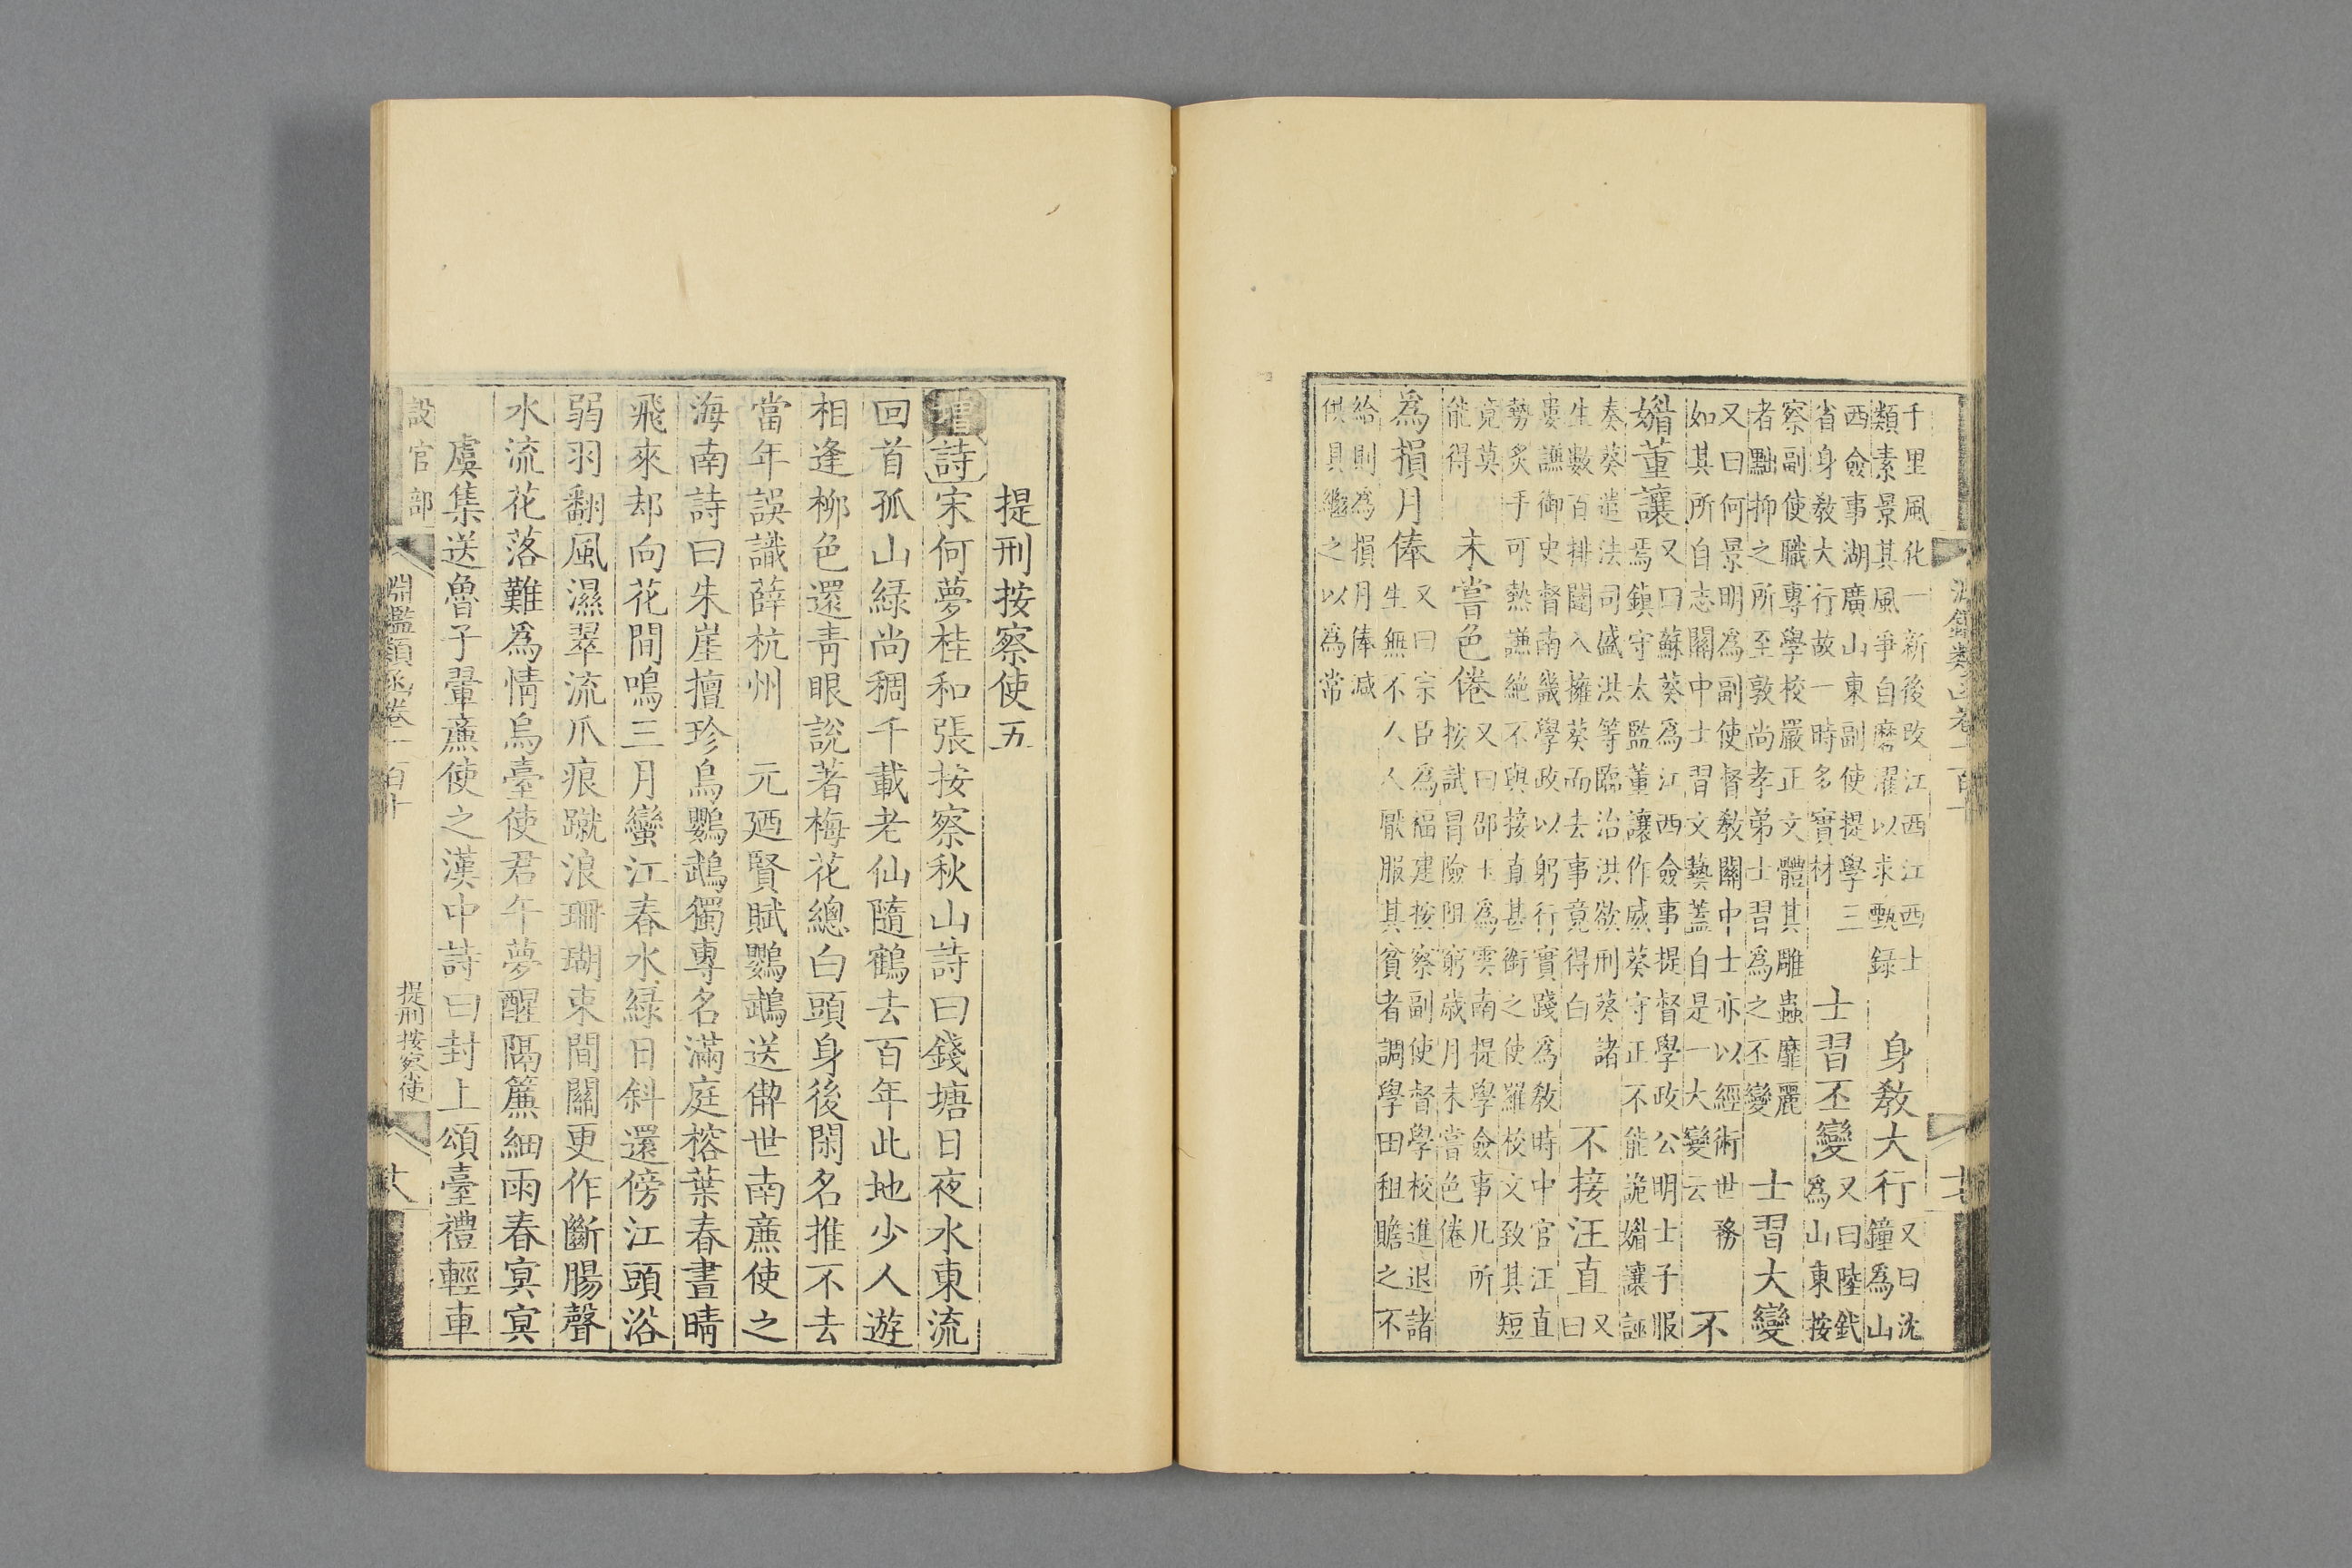 千里風化一新後改江西江西士
類素景其風爭自磨濯以求甄錄
身教大行
又曰沈
鐘為山
西僉事湖廣山東副使提學三
省身教大行故一時多實材
士習丕變
又曰陸釴
為山東按
察副使職專學校嚴正文體其雕蟲靡麗
者黜抑之所至敦尚孝弟士習為之丕變
士習大變
又曰何景明為副使督教關中士亦以經術世務
如其所自志關中士習文藝蓋自是一大變云
不
媚董讓
又曰蘇葵為江西僉事提督學政公明士子服
焉鎮守太監董讓作威葵守正不能詭媚讓誣
奏葵遣法司盛洪等臨治洪欲刑葵諸
生數百排闥入擁葵而去事竟得白
不接汪直
又
曰
婁謙御史督南畿學政以躬行實踐為教時中官汪直
勢炙手可熱謙絕不與接直甚銜之使羅校文致其短
竟莫
能得
未嘗色倦
又曰邵玉為雲南提學僉事凡所
按試冒險阻窮歲月未嘗色倦
為損月俸
又曰宗臣為福建按察副使督學校進退諸
生無不人人厭服其貧者調學田租贍之不
給則為損月俸減
供具繼之以為常
提刑按察使五
增詩宋何夢桂和張按察秋山詩曰錢塘日夜水東流
回首孤山綠尚稠千載老仙隨鶴去百年此地少人遊
相逢柳色還青眼說著梅花總白頭身後閑名推不去
當年誤識薛杭州 元廼賢賦鸚鵡送僻世南廉使之
海南詩曰朱崖擅珍鳥鸚鵡獨專名滿庭榕葉春晝晴
飛來却向花間鳴三月蠻江春水綠日斜還傍江頭浴
弱羽翻風濕翠流爪痕蹴浪珊瑚束間關更作斷腸聲
水流花落難爲情烏臺使君午夢醒隔簾細雨春冥冥
虞集送魯子翬廉使之漢中詩曰封上頌臺禮輕車
設官部
淵鑑類函卷一百十
提刑按察使